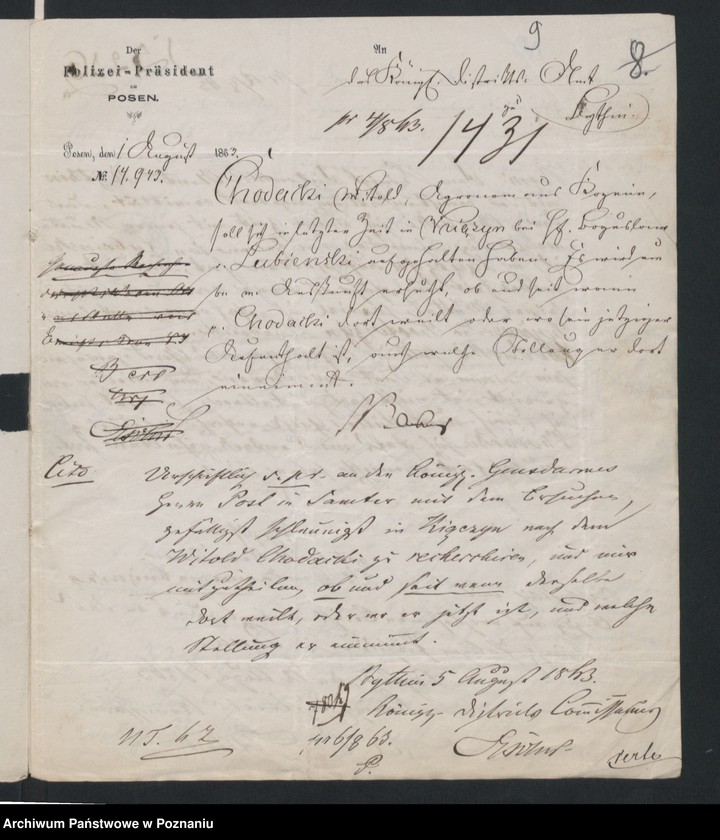 9
8.
Der
Polizei-Präsident
zu
POSEN.
An
das Königl. Distrikts-Amt
Pythin
pr 4/8 63.
1431
Posen, den 1 August 1863.
№ 14.943.
Chodacki Witold, Agronom aus
soll sich in letzter Zeit in bei H. Boguslaw
v. Lubienski aufgehalten haben. Es wird um
Auskunft ersucht, ob und seit wann
p. Chodacki dort weilt oder wo sein jetziger
Aufenthalt ist, auch welche Stellung er dort
einnimmt.
Cito
Urschriftlich s. p. r. an den Königl. Gensdarmes
Herrn Post in Samter mit dem Ersuchen,
gefälligst schleunigst in nach dem
Witold Chodacki zu recherchiren, und mir
mitzutheilen, ob und seit wann derselbe
dort weilt, oder wo er jetzt ist, und welche
Stellung er einnimmt.
Pythin 5 August 1863.
Königl. Districts Commissarius
pr 6/8 63.
P.
verte
Archiwum Państwowe w Poznaniu